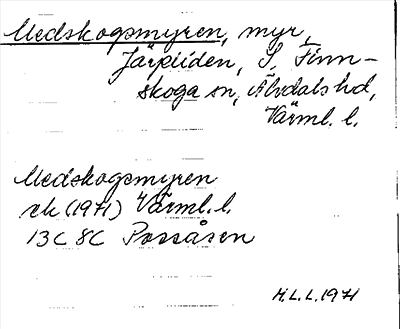 Medskogsmyren, myr,
Järpliden, S. Finn-
skoga sn, Älvdals hd,
Värml. l.
Medskogsmyren
ek (1971) Värml. l.
13C 8C Possåsen
H.L.L. 1971